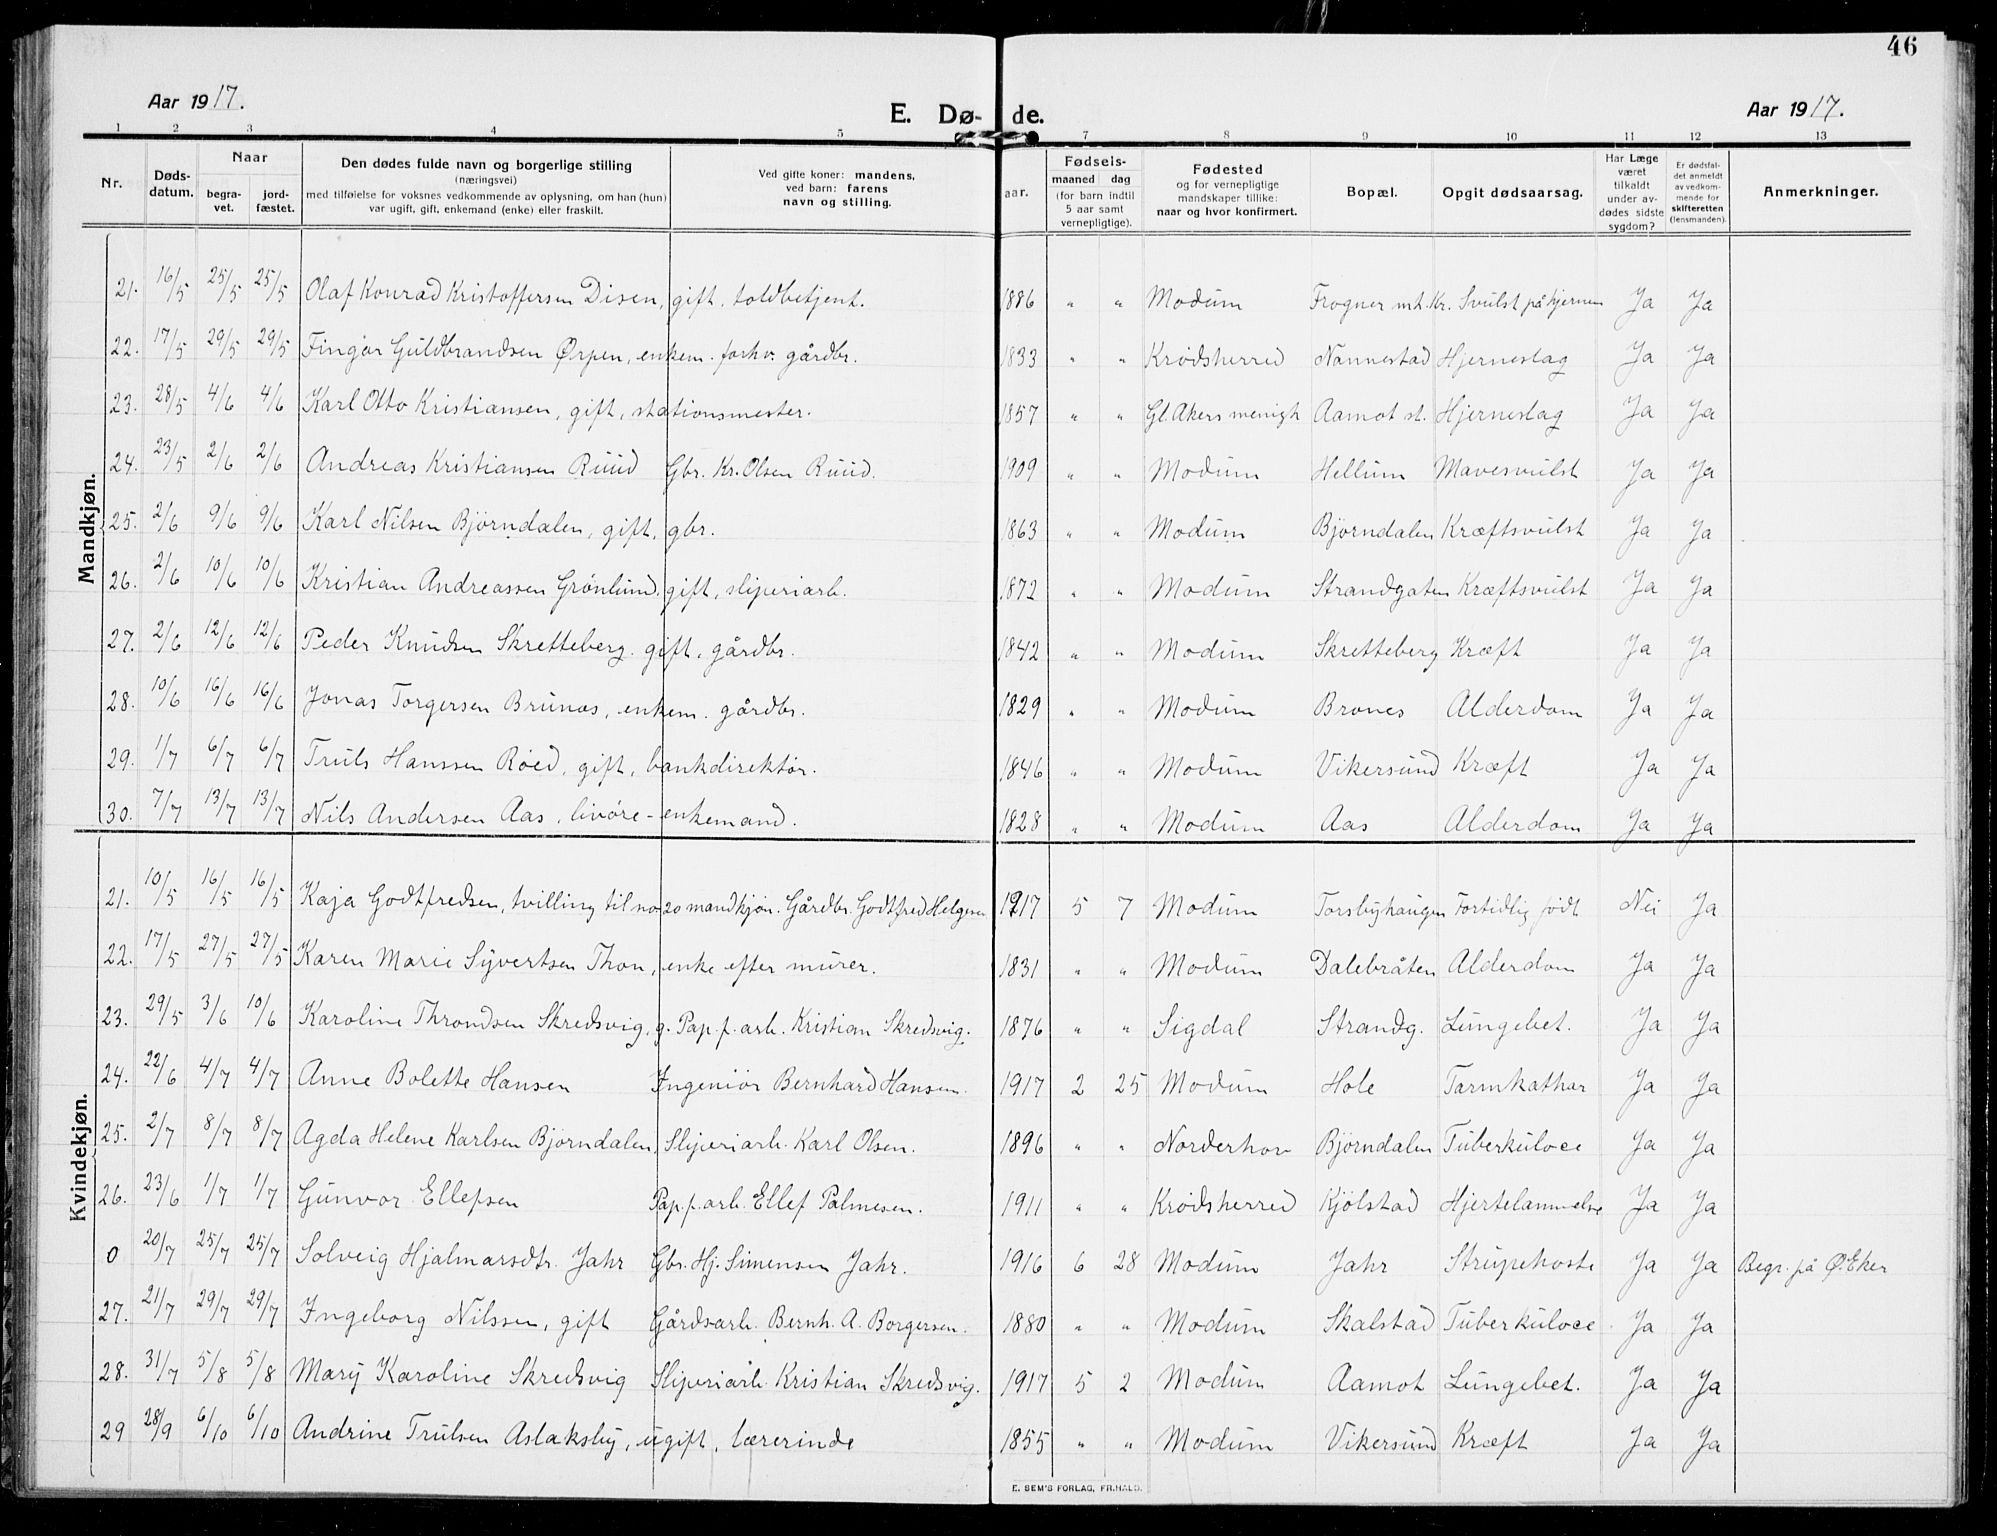 46
Aar 1917.
E. Dø- de.
Aar 1917.
1 2 3 4 5 7 8 9 10 11 12 13
Nr.
Døds-
datum.
Naar
begra-
vet.
jord-
fæstet.
Den dødes fulde navn og borgerlige stilling
(næringsvei)
med tilføielse for voksnes vedkommende av oplysning, om han (hun)
var ugift, gift, enkemand (enke) eller fraskilt.
Ved gifte koner: mandens,
ved barn: farens
navn og stilling.
aar.
Fødsels-
maaned dag
(for barn indtil
5 aar samt
vernepligtige).
Fødested
og for vernepligtige
mandskaper tillike:
naar og hvor konfirmert.
Bopæl.
Opgit dødsaarsag.
Har Læge
været
tilkaldt
under av-
dødes sidste
sygdom?
Er dødsfal-
det anmeldt
av vedkom-
mende for
skifteretten
(lensmanden).
Anmerkninger.
Mandkjøn.
21. 16/5 25/5 25/5 Olaf Konrad Kristoffersen Disen, gift, toldbetjent. 1886 " " Modum Frogner mh. Kr. Svulst på hjernen Ja Ja
22. 17/5 29/5 29/5 Fingar Guldbrandsen Ørpen, enkem. forhv. gårdbr. 1833 " " Krødsherred Nannestad Hjerneslag Ja Ja
23. 28/5 4/6 4/6 Karl Otto Kristiansen, gift, stationsmester. 1857 " " Gl. Akers menigh Aamot st. Hjerneslag Ja Ja
24. 23/5 2/6 2/6 Andreas Kristiansen Ruud Gbr. Kr. Olsen Ruud. 1909 " " Modum Hellum Mavesvulst Ja Ja
25. 2/6 9/6 9/6 Karl Nilsen Bjørndalen, gift, gbr. 1863 " " Modum Bjørndalen Kræftsvulst Ja Ja
26. 2/6 10/6 10/6 Kristian Andreassen Grønlund, gift, sliperiarb. 1872 " " Modum Strandgaten Kræftsvulst Ja Ja
27. 2/6 12/6 12/6 Peder Knudsen Skretteberg. gift, gårdbr. 1842 " " Modum Skretteberg Kræft Ja Ja
28. 10/6 16/6 16/6 Jonas Torgersen Brunæs, enkem. gårdbr. 1829 " " Modum Brones Alderdom Ja Ja
29. 1/7 6/7 6/7 Truls Hanssen Røed, gift, bankdirektør. 1846 " " Modum Vikersund Kræft Ja Ja
30. 7/7 13/7 13/7 Nils Andersen Aas, livøre-enkemand. 1828 " " Modum Aas Alderdom Ja Ja
Kvindekjøn.
21. 10/5 16/5 16/5 Kaja Godtfredsen, tvilling til no 20 mandkjøn. Gårdbr. Godtfred Helgesen 1917 5 7 Modum Torsbyhaugen Fortidlig født Nei Ja
22. 17/5 27/5 27/5 Karen Marie Syvertsen Thon, enke efter murer. 1831 " " Modum Dalebråten Alderdom Ja Ja
23. 29/5 3/6 10/6 Karoline Throndsen Skredsvig, g. Pap.f.arb. Kristian Skredsvig. 1876 " " Sigdal Strandg. Lungebet. Ja Ja
24. 22/6 4/7 4/7 Anne Bolette Hansen Ingeniør Bernhard Hansen. 1917 2 25 Modum Hole Tarmkathar Ja Ja
25. 2/7 8/7 8/7 Agda Helene Karlsen Bjørndalen, Sliperiarb. Karl Olsen. 1896 " " Norderhov Bjørndalen Tuberkuloce Ja Ja
26. 23/6 1/7 1/7 Gunvor Ellefsen Pap.f.arb. Ellef Palmesen. 1911 " " Krødsherred Kjølstad Hjertelammelse Ja Ja
0 20/7 25/7 25/7 Solveig Hjalmarsdtr. Jahr Gbr. Hj. Simensen Jahr. 1916 6 28 Modum Jahr Strupehoste Ja Ja Begr. på Ø. Eker
27. 21/7 29/7 29/7 Ingeborg Nilssen, gift Gårdsarb. Bernh. A. Borgersen. 1880 " " Modum Skalstad Tuberkuloce. Ja Ja
28. 31/7 5/8 5/8 Mary Karoline Skredsvig Sliperiarb. Kristian Skredsvig. 1917 5 2 Modum Aamot Lungebet. Ja Ja
29 28/9 6/10 6/10 Andrine Trulsen Aslaksby, ugift, lærerinde 1855 " " Modum Vikersund Kræft Ja Ja
E. SEM'S FORLAG, FR.HALD.